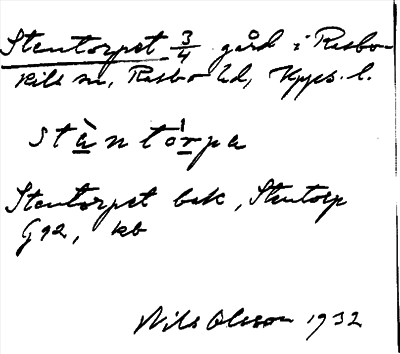 Stentorpet 3/4 gård i Rasbo-
kils sn, Rasbo hd, Upps. l.
stà̱ntóṟpa
Stentorpet bek, Stentorp
G92, kb
Nils Olsson 1932